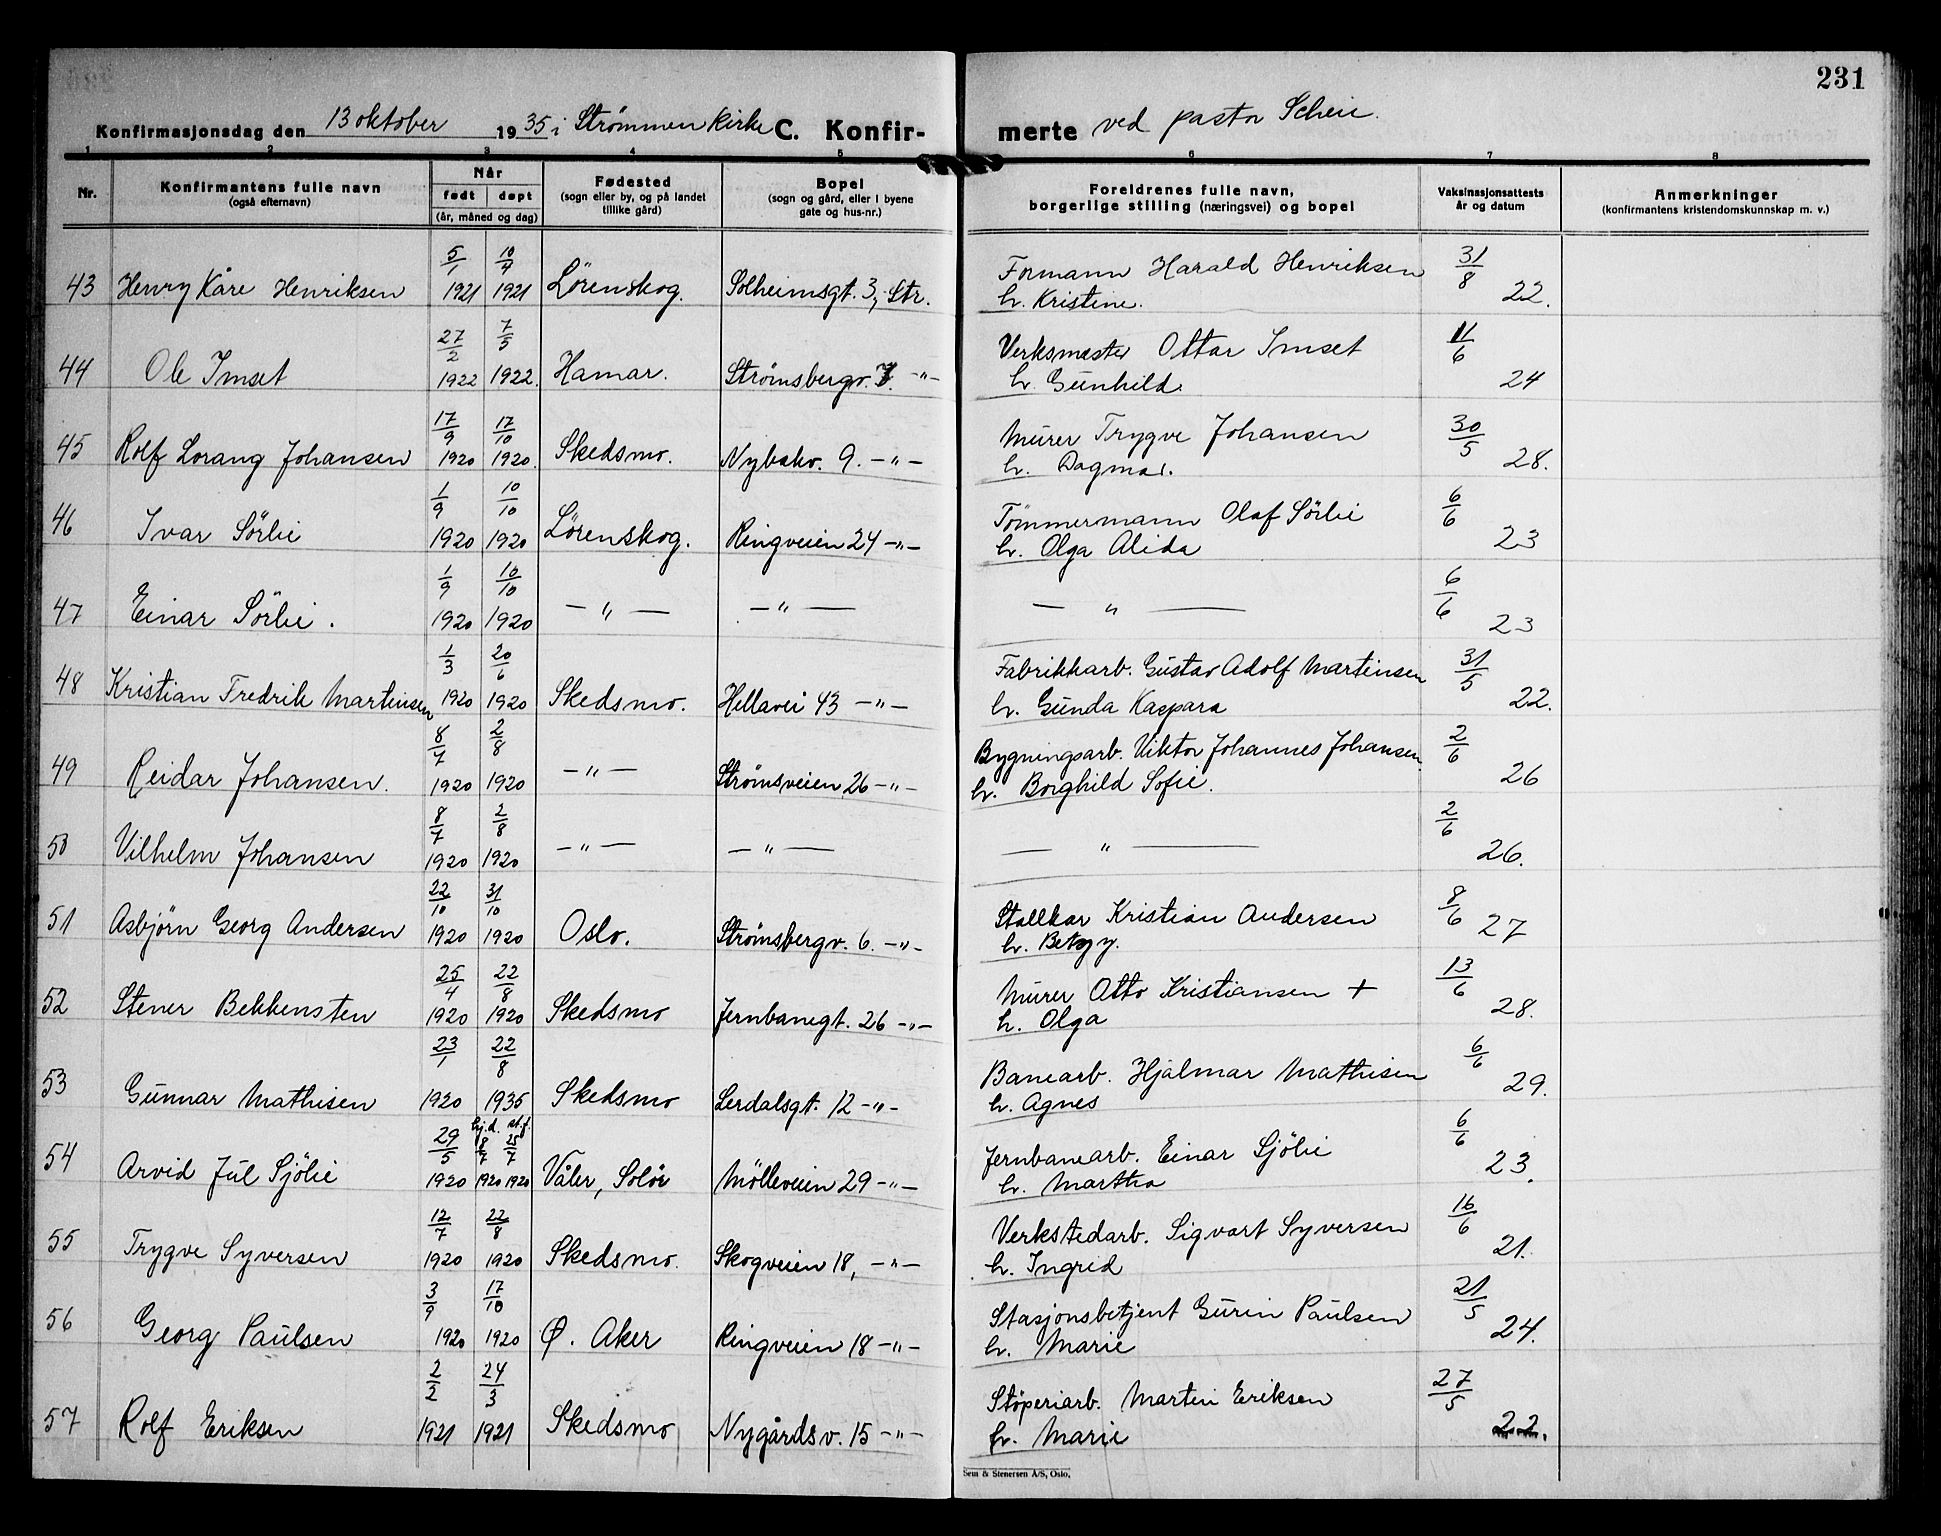 231
Konfirmasjonsdag den 13 oktober 1935 i Strømmen kirke C. Konfirmerte ved pastor Scheie.
1 2 3 4 5 6 7 8
Nr. Konfirmantens fulle navn (også efternavn) Når født døpt (år, måned og dag) Fødested (sogn eller by, og på landet tillike gård) Bopel (sogn og gård, eller i byene gate og hus-nr.) Foreldrenes fulle navn, borgerlige stilling (næringsvei) og bopel Vaksinasjonsattests år og datum Anmerkninger (konfirmantens kristendomskunnskap m. v.)
43 Henry Kåre Henriksen 5/1 1921 10/4 1921 Lørenskog. Solheimsgt. 3, Str. Formann Harald Henriksen 31/8 22.
h. Kristine.
44 Ole Imset 27/2 1922 7/5 1922. Hamar. Strømsbergv. 7. -"- Verksmester Ottar Imset 11/6 24
h. Gunhild.
45 Rolf Lorang Johansen 17/9 1920 17/10 1920. Skedsmo. Nybakv. 9. -"- Murer Trygve Johansen 30/5 28.
h. Dagmar.
46 Ivar Sörlie 1/9 1920 10/10 1920 Lörenskog. Ringveien 24 -"- Tömmermann Olaf Sörlie 6/6 23
h. Olga Alida
47 Einar Sörlie. 1/9 1920 10/10 1920 -"- -"- -"- 6/6 23
48 Kristian Fredrik Martinsen 1/3 1920 20/6 1920 Skedsmo. Hellavei 43 -"- Fabrikkarb. Gustav Adolf Martinsen 31/5 22.
h. Gunda Kaspara
49 Reidar Johansen. 8/7 1920 2/8 1920 -"- Strömsveien 26 -"- Bygningsarb. Viktor Johannes Johansen. 2/6 26
h. Borghild Sofie.
50 Vilhelm Johansen 8/7 1920 2/8 1920 -"- -"- -"- 2/6 26.
51 Asbjörn Georg Andersen 22/10 1920 31/10 1920 Oslo. Strömsbergv. 6. -"- Stallkar Kristian Andersen 8/6 27
h. Betsy y.
52 Stener Bekkensten 25/4 1920 22/8 1920 Skedsmo Jernbanegt. 26 -"- Murer Otto Kristiansen + 13/6 28.
h. Olga
53 Gunnar Mathisen 23/1 1920 22/8 1935 Skedsmo Lerdalsgt. 12 -"- Banearb. Hjalmar Mathisen 6/6 29.
h. Agnes
54 Arvid Jul Sjölie 29/5 1920 hj.d. 8/7 1920 st.f. 25/7 1920 Våler, Solör Mölleveien 29 -"- Jernbanearb. Einar Sjölie 6/6 23.
h. Martha
55 Trygve Syversen 12/7 1920 22/8 1920 Skedsmo. Skogveien 18, -"- Verkstedarb. Sigvart Syversen 16/6 21.
h. Ingrid
56 Georg Paulsen 3/9 1920 17/10 1920 Ø. Aker Ringveien 18 -"- Stasjonsbetjent Gurin Paulsen 21/5 24.
h. Marie
57 Rolf Eriksen 2/2 1921 24/3 1921 Skedsmo Nygårdsv. 15 -"- Stöperiarb. Martin Eriksen 27/5 22.
h. Marie
Sem & Stenersen A/S, Oslo.